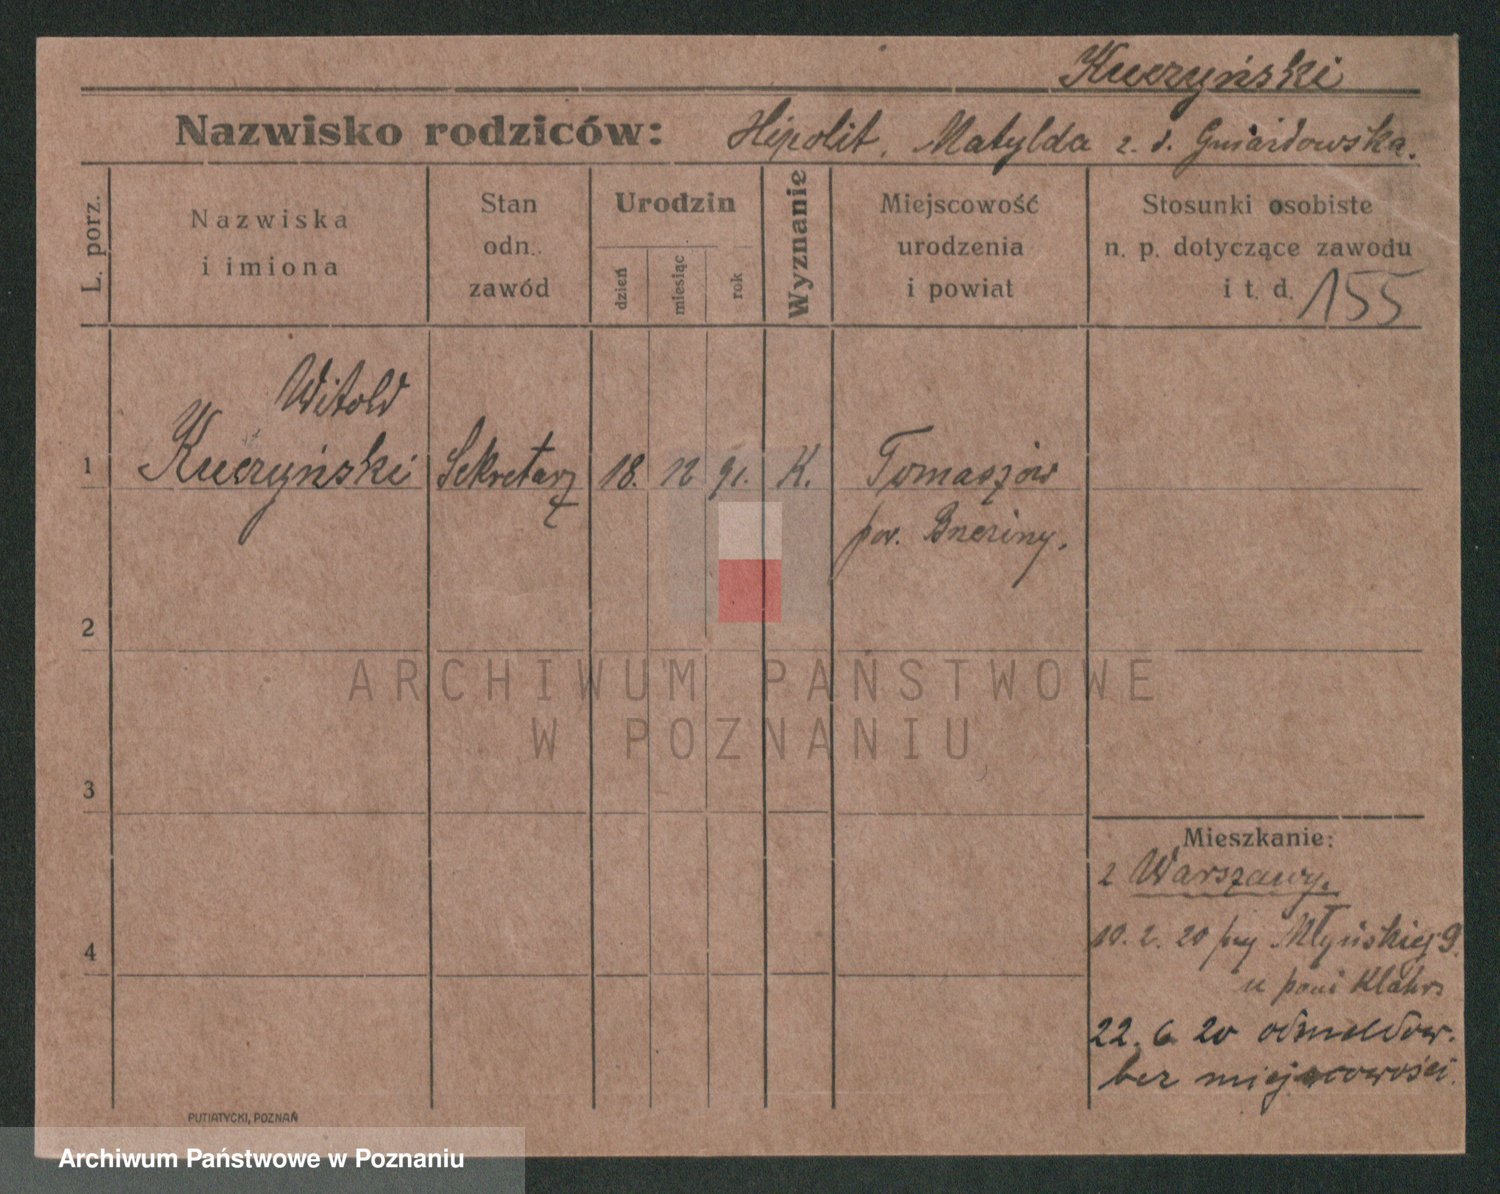 Kuczyński
Nazwisko rodziców: Hipolit, Matylda z d. Gniazdowska.
L. porz.
Nazwiska
i imiona
Stan
odn.
zawód
Urodzin
dzień
miesiąc
rok
Wyznanie
Miejscowość
urodzenia
i powiat
Stosunki osobiste
n. p. dotyczące zawodu
i t. d. 155
Witold
1 Kuczyński Sekretarz 18. 12 91. K. Tomaszów
pow. Brzeziny.
2
ARCHIWUM PAŃSTWOWE
W POZNANIU
3
Mieszkanie:
z Warszawy.
4
10. 2. 20 przy Młyńskiej 9.
u pani
22. 6 20 odmeldow.
bez miejscowości.
PUTIATYCKI, POZNAŃ
Archiwum Państwowe w Poznaniu